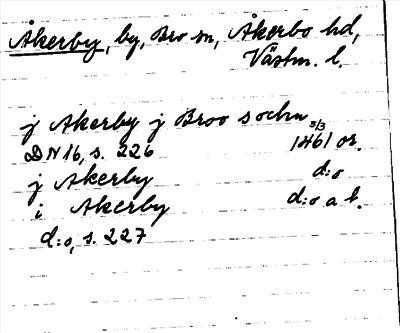 Åkerby, by, Bro sn, Åkerbo hd,
Västm. l.
j Akerby j Broo sochn
DN 16, s. 226 5/3 1461 or.
j Akerby d:o
i Akerby d:o a f.
d:o, s. 227